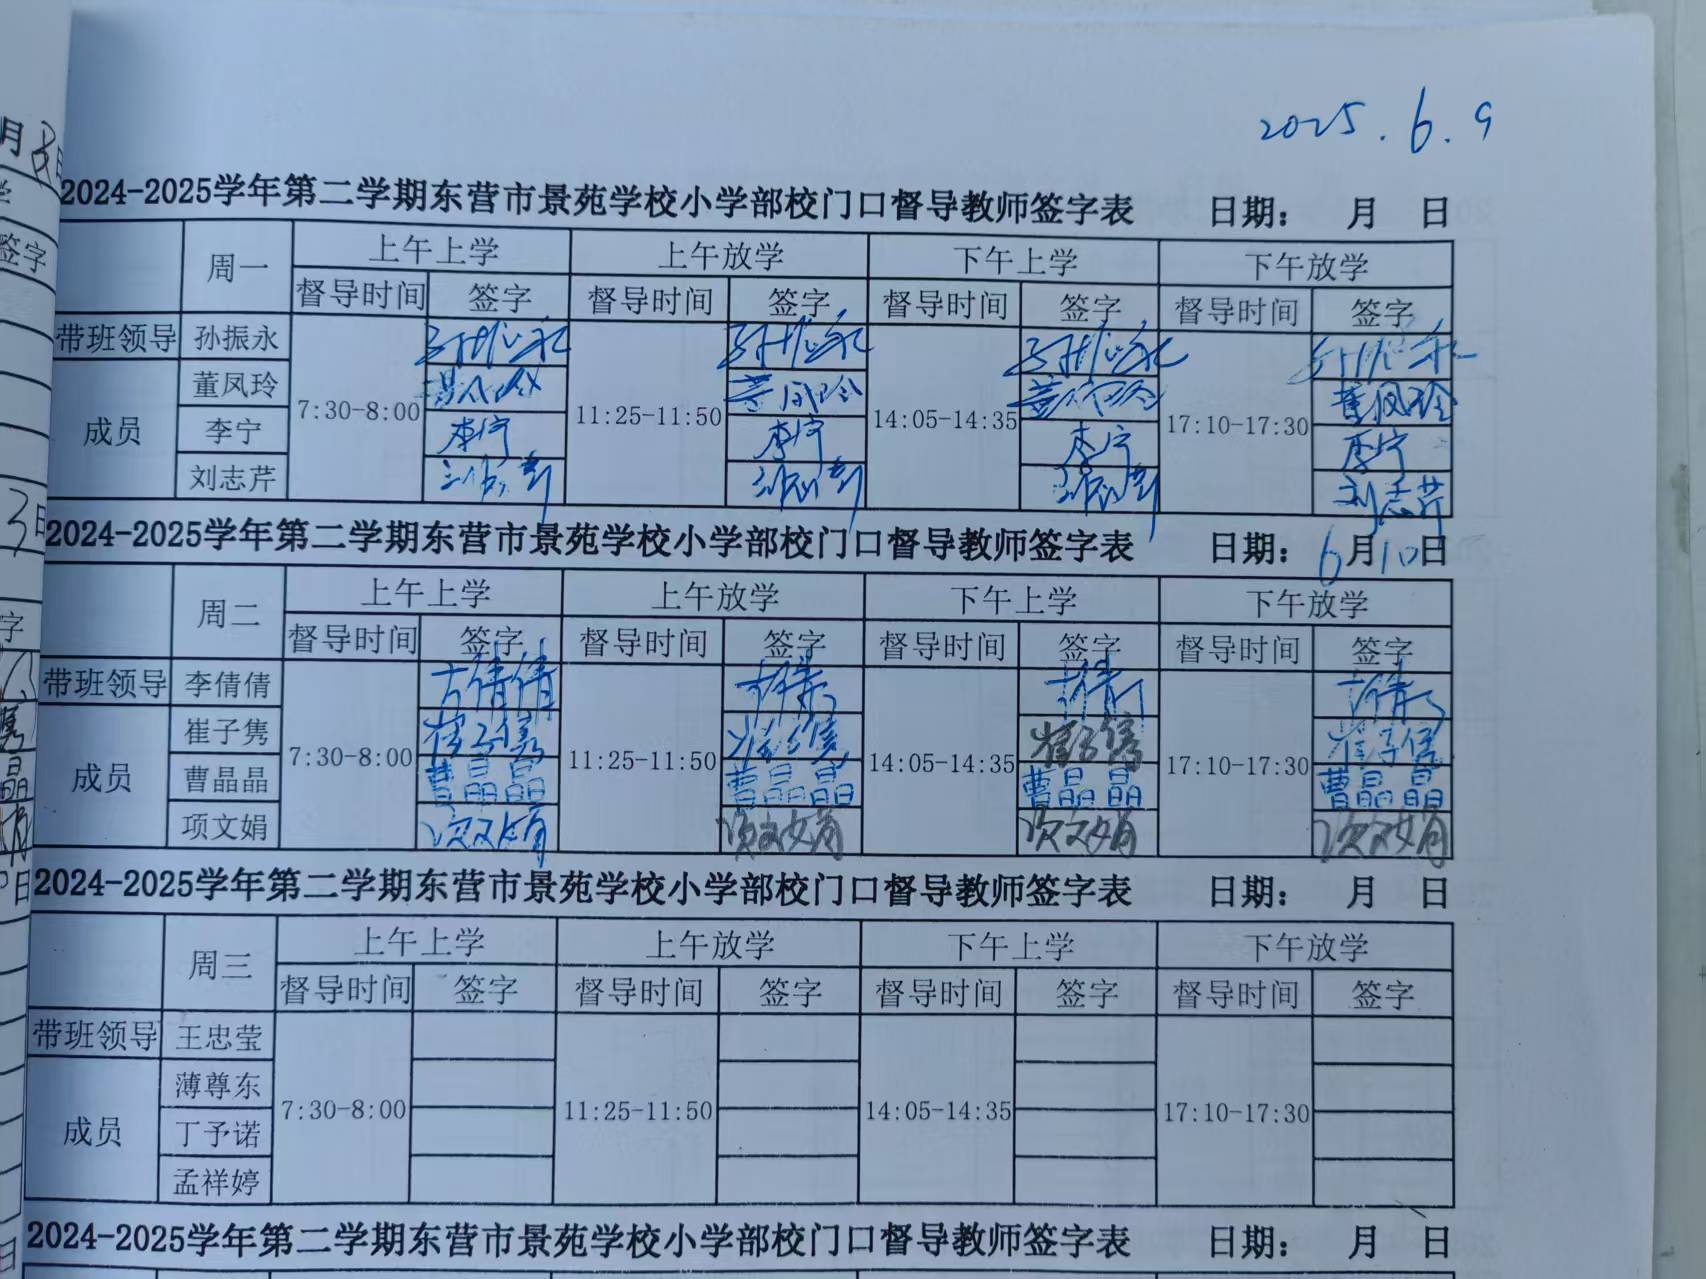 2025.6.9
2024-2025学年第二学期东营市景苑学校小学部校门口督导教师签字表 日期： 月 日
周一 上午上学 上午放学 下午上学 下午放学
督导时间 签字 督导时间 签字 督导时间 签字 督导时间 签字
带班领导 孙振永 孙振永 孙振永 孙振永 孙振永
成员 7:30-8:00 11:25-11:50 14:05-14:35 17:10-17:30
董凤玲 董凤玲 董凤玲 董凤玲
李宁 李宁 李宁 李宁 李宁
刘志芹 刘志芹 刘志芹 刘志芹 刘志芹
2024-2025学年第二学期东营市景苑学校小学部校门口督导教师签字表 日期：6月10日
周二 上午上学 上午放学 下午上学 下午放学
督导时间 签字 督导时间 签字 督导时间 签字 督导时间 签字
带班领导 李倩倩 李倩倩
成员 7:30-8:00 11:25-11:50 14:05-14:35 17:10-17:30
崔子隽 崔子隽 崔子隽 崔子隽 崔子隽
曹晶晶 曹晶晶 曹晶晶 曹晶晶 曹晶晶
项文娟 项文娟 项文娟 项文娟 项文娟
2024-2025学年第二学期东营市景苑学校小学部校门口督导教师签字表 日期： 月 日
周三 上午上学 上午放学 下午上学 下午放学
督导时间 签字 督导时间 签字 督导时间 签字 督导时间 签字
带班领导 王忠莹
成员 7:30-8:00 11:25-11:50 14:05-14:35 17:10-17:30
薄尊东
丁予诺
孟祥婷
2024-2025学年第二学期东营市景苑学校小学部校门口督导教师签字表 日期： 月 日